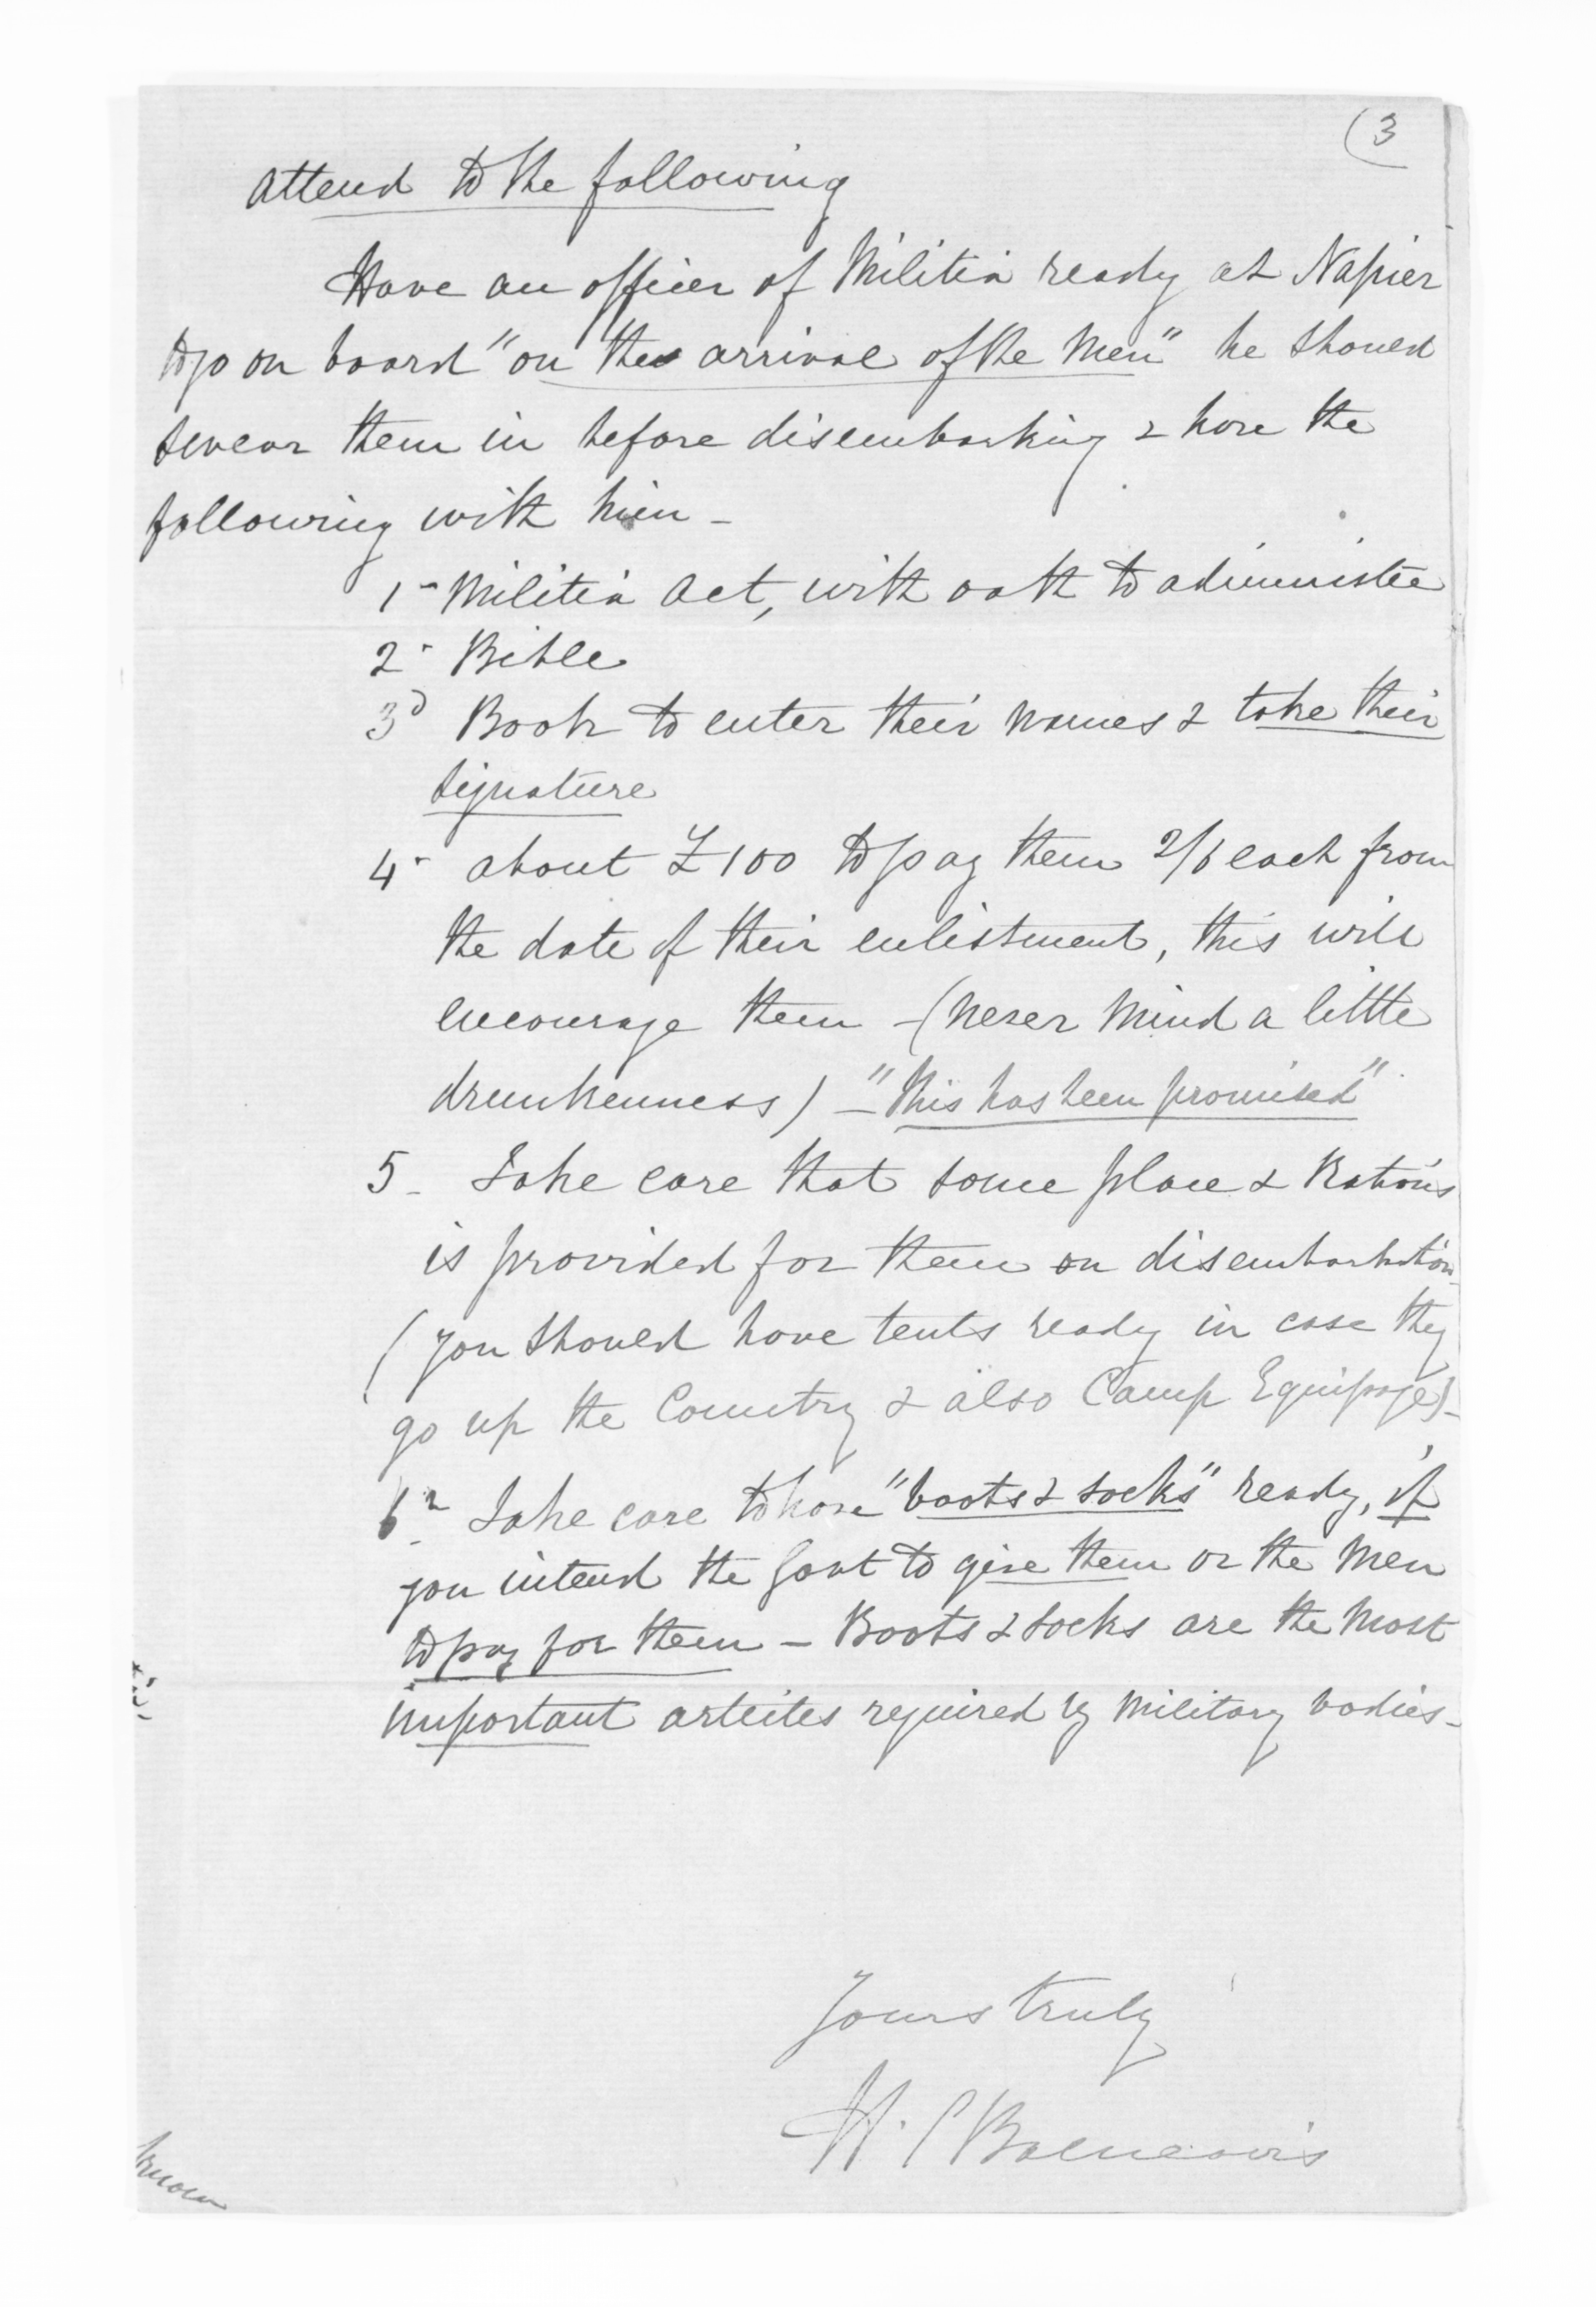 (3
Attend to the following
Have an officer of Militia ready at Napier
to go on board "on the arrival of the Men" he should
swear them in before disembarking & have the
following with him -
1 - Militia Act, with oath to administer
2 - Bible
3d Book to enter their names & take their
signature
4 - about £100 to pay them 2/6 each from
the date of their enlistment, this will
encourage them - (never mind a little
drunkenness) - "this has been promised"
5 - Take care that some place & Rations
is provided for them on disembarkation
(you should have tents ready in case they
go up the Country & also Camp Equipage) -
6 - Take care to have "boots & socks" ready, if
you intend the Govt to give them or the Men
to pay for them - Boots & socks are the most
important articles required by military bodies -
Yours truly
H. C Balneavis
known